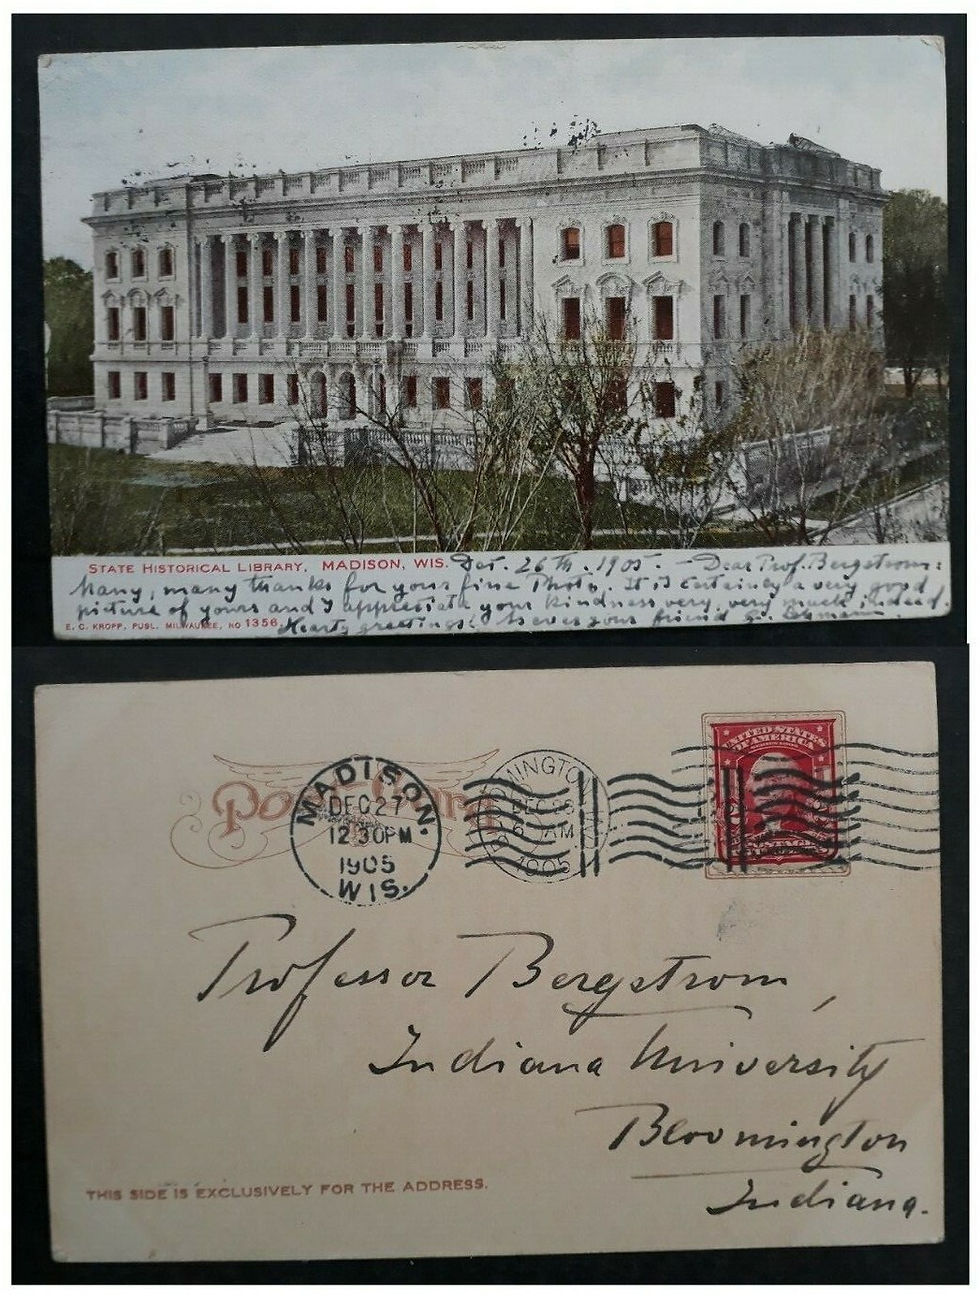 STATE HISTORICAL LIBRARY, MADISON, WIS. Dec. 26th. 1905. – Dear Prof. Bergstrom:
Many, many thanks for your fine Photo. It is certainly a very good
picture of yours and I appreciate your kindness very, very much indeed
E. C. KROPP, PUBL. MILWAUKEE, NO 1356. Hearty greetings! As ever your friend
Post Card
MADISON,
DEC 27
12 30PM
1905
WIS.
BLOOMINGTON
DEC 28
6 AM
1905
UNITED STATES
OF AMERICA
2 2
POSTAGE
Professor Bergstrom,
Indiana University
Bloomington
Indiana.
THIS SIDE IS EXCLUSIVELY FOR THE ADDRESS.